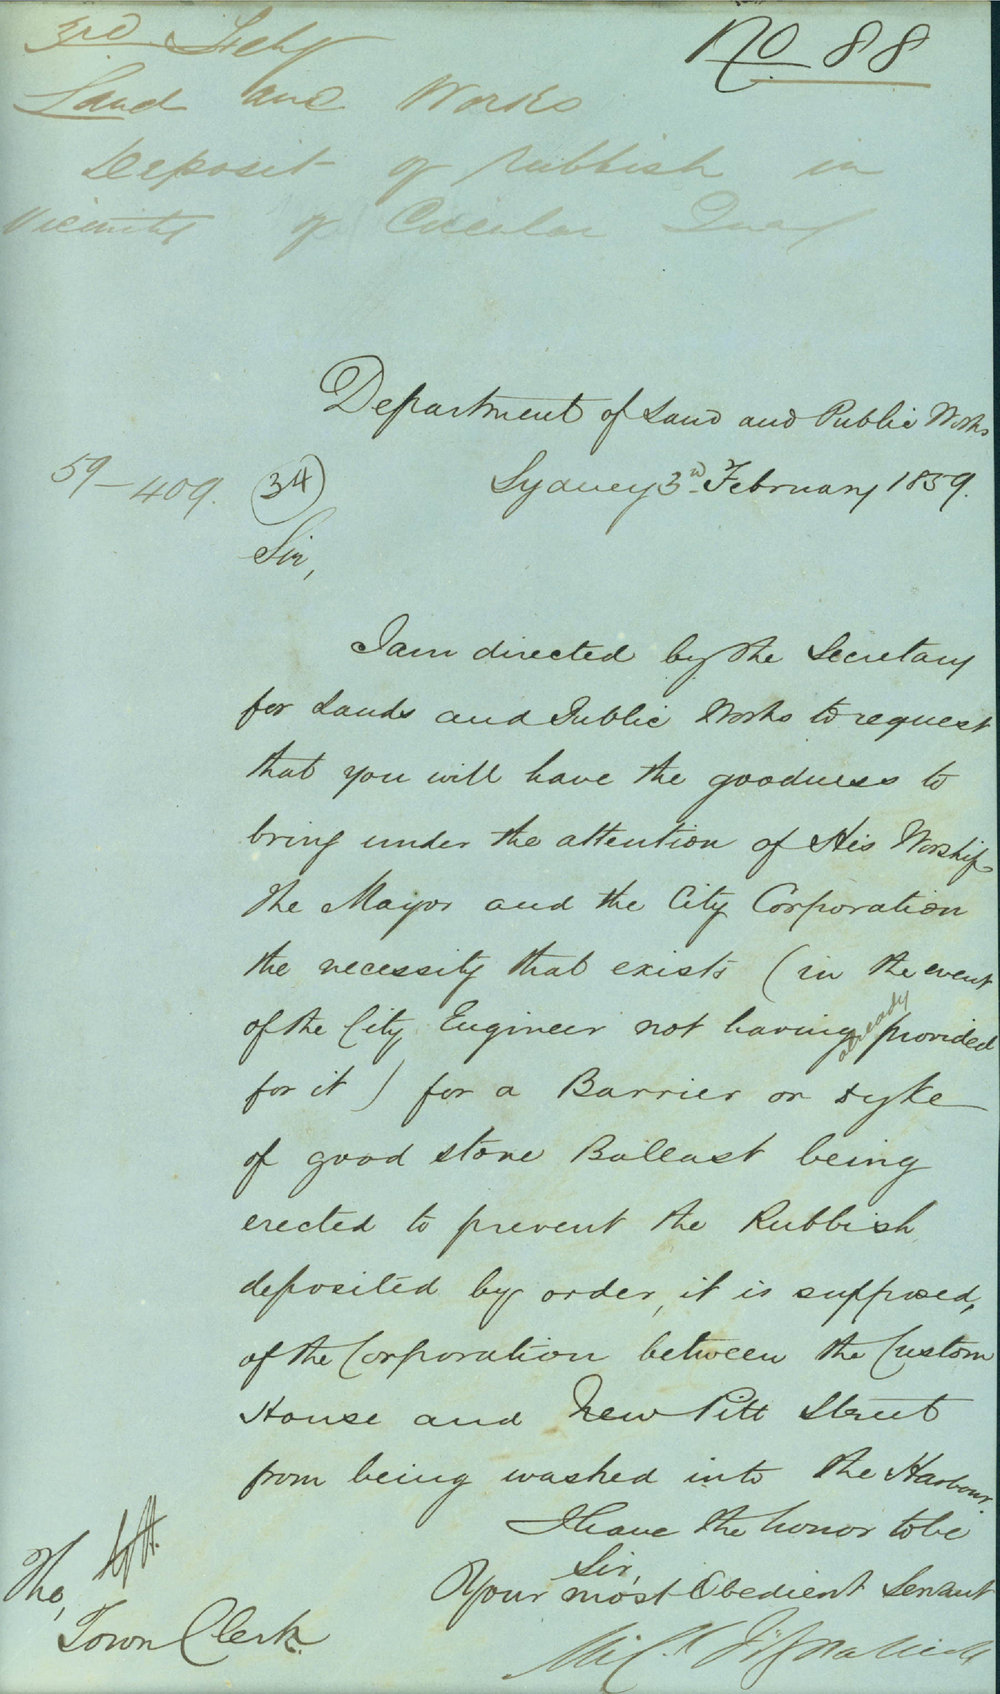 No 88
3rd Feby
Land and Works
Deposit of rubbish in
vicinity of Circular Quay
Department of Land and Public Works
59-409. (34) Sydney 3rd February 1859.
Sir,
I am directed by the Secretary
for Lands and Public Works to request
that you will have the goodness to
bring under the attention of His Worship
the Mayor and the City Corporation
the necessity that exists (in the event
of the City Engineer not having already provided
for it) for a Barrier or dyke
of good stone Ballast being
erected to prevent the Rubbish
deposited by order, it is supposed,
of the Corporation between the Custom
House and New Pitt Street
from being washed into the Harbour.
I have the honor to be
Sir,
Your most Obedient Servant
Mich Fitzpatrick
The
Town Clerk